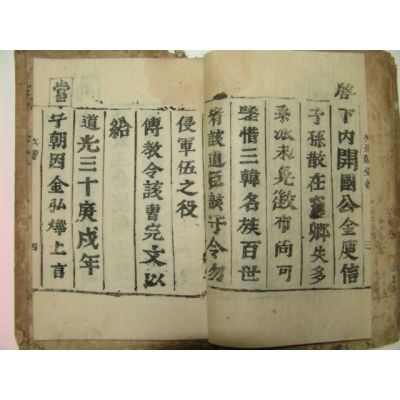 啓下內開國公金庾信
子孫散在鄉失多
派未免徵布尚可
惜三韓名族百世
該道臣該守令勿
侵軍伍之役
傳教令該曹完文以
給
道光三十庚戌年
當宁朝因金弘燁上言
四